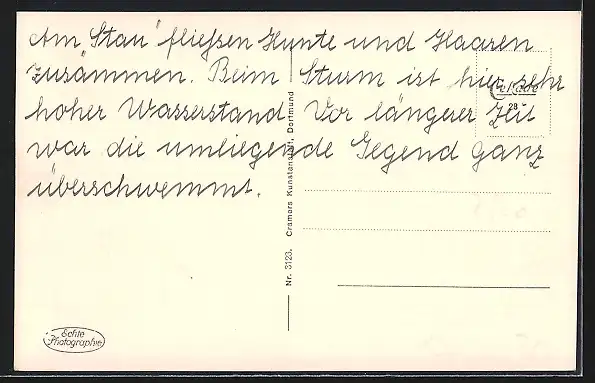 Am „Stau" fließen Hunte und Haaren
zusammen. Beim Sturm ist hier sehr
hoher Wasserstand. Vor längerer Zeit
war die umliegende Gegend ganz
überschwemmt.
Nr. 3123. Cramers Kunstanstalt, Dortmund
28
Echte
Photographie